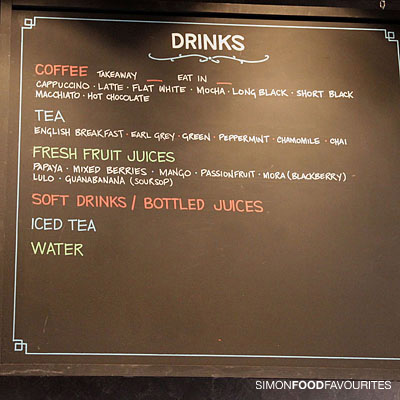 DRINKS
COFFEE TAKEAWAY __ EAT IN __
CAPPUCCINO · LATTE · FLAT WHITE · MOCHA · LONG BLACK · SHORT BLACK
MACCHIATO · HOT CHOCOLATE
TEA
ENGLISH BREAKFAST · EARL GREY · GREEN · PEPPERMINT · CHAMOMILE · CHAI
FRESH FRUIT JUICES
PAPAYA · MIXED BERRIES · MANGO · PASSIONFRUIT · MORA (BLACKBERRY) ·
LULO · GUANABANA (SOURSOP)
SOFT DRINKS / BOTTLED JUICES
ICED TEA
WATER
SIMONFOODFAVOURITES